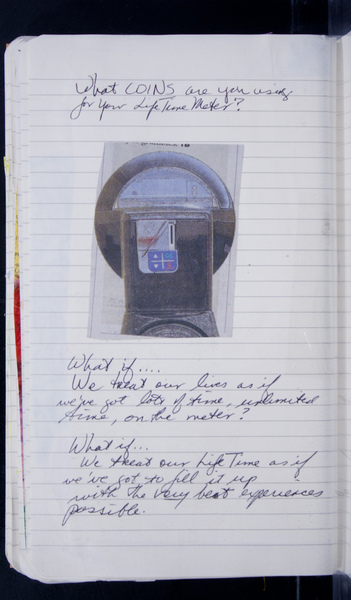 What COINS are you using
for your LifeTime Meter?
What if....
We treat our lives as if
we've got lots of time, unlimited
time, on the meter?
What if...
We treat our LifeTime as if
we've got to fill it up
with the very best experiences
possible.